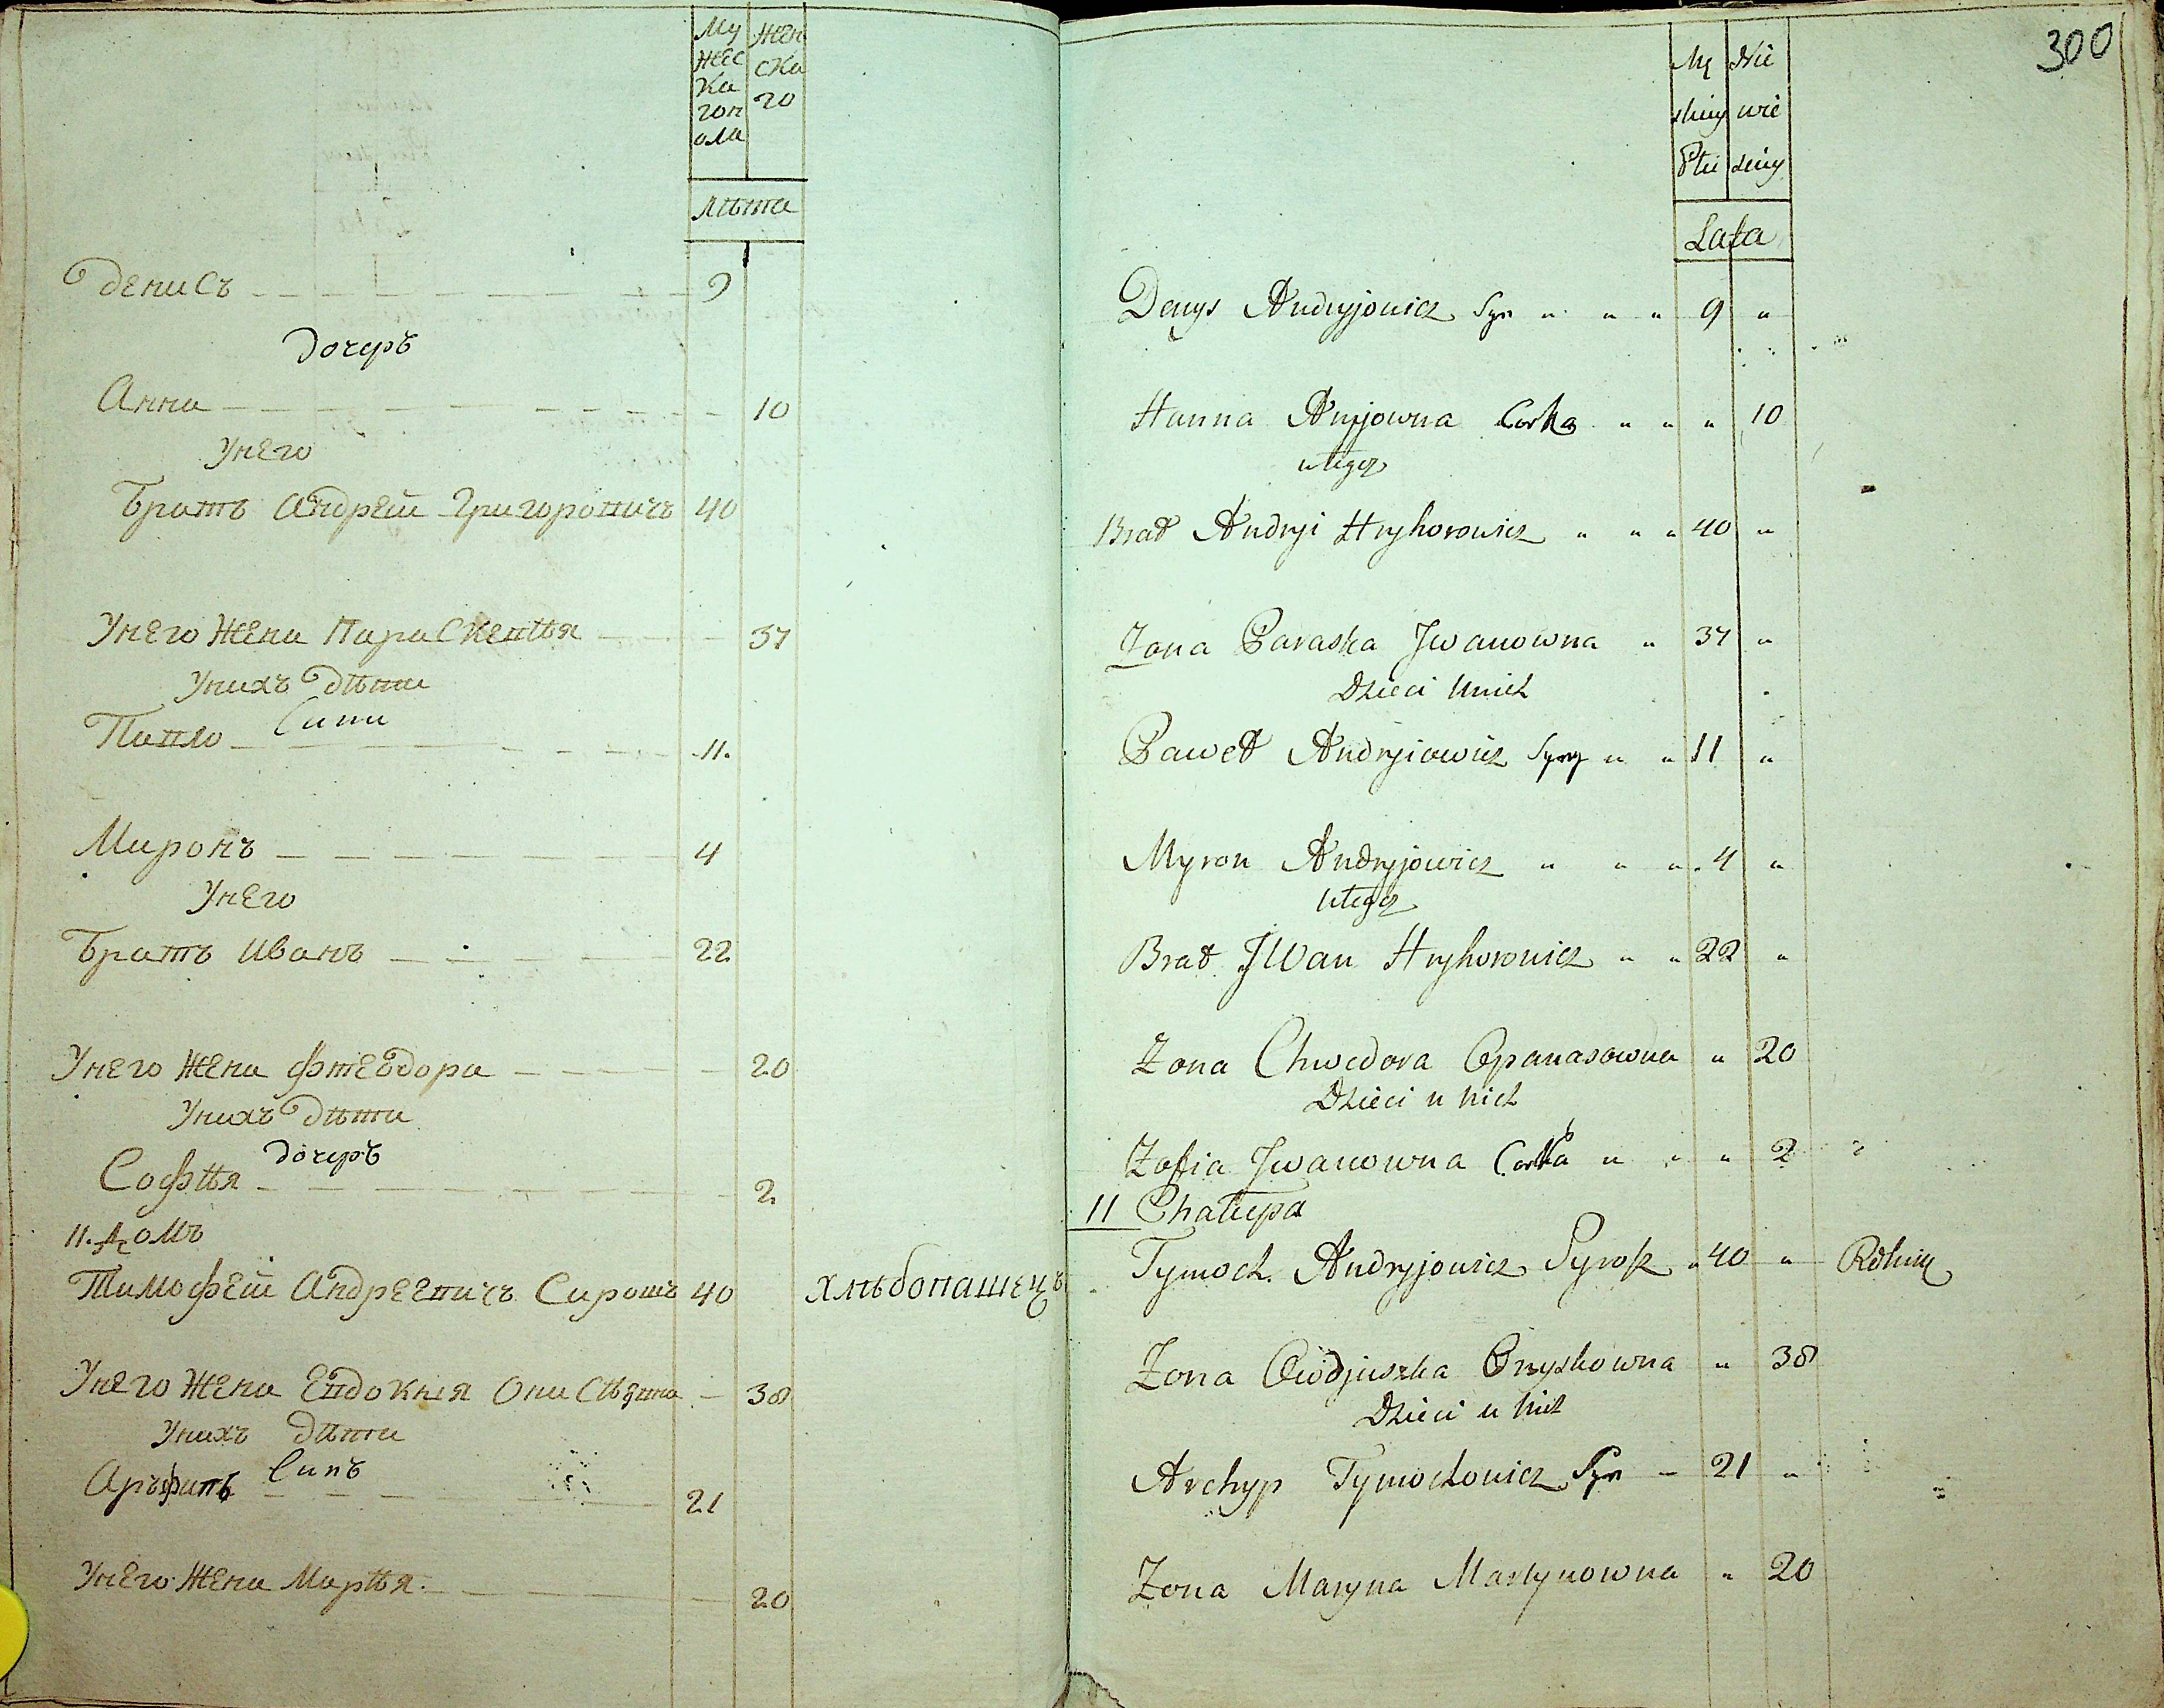 Му жес ка гоп ола
жен ска го
лѣта
Денисъ 9
дочеръ
Анна 10
Унего
Братъ Андрей Григоровичъ 40
Унего жена Параскевѣя 37
Унихъ дѣти
Сини
Павло 11.
Миронъ 4
Унего
Братъ Иванъ 22
Унего жена Фтеодора 20
Унихъ дѣти
дочеръ
Софѣя 2
11. Домъ
Тимофей Андреевичъ Сирошъ 40 хлѣбопашецъ
Унего жена Евдокия 38
Унихъ дѣти
Синъ
21
Унего жена Марѣя. 20
300
Mę skiey Płci
Nie wie sciey
Lata
Denys Andryjowicz Syn " " " 9 "
Hanna Anyjowna Corka " " " 10
utegoz
Brat Andryi Hryhorowicz " " " 40 "
Zona Paraska Jwanowna " 37 "
Dzieci Unich
Paweł Andryiowicz Syny " " 11 "
Myron Andryjowicz " " " 4 "
utegoz
Brat JWan Hryhorowicz " " 22 "
Zona Chwedora Opanasowna " 20
Dzieci u nich
Zofia Jwanowna Corka " " " 2
11 Chałupa
Tymoch Andryjowicz Syrosz " 40 " Rolnik
Zona Owdjuszka Onyskowna " 38
Dzieci u nich
Archyp Tymochowicz Syn " 21 "
Zona Maryna Martynowna " 20